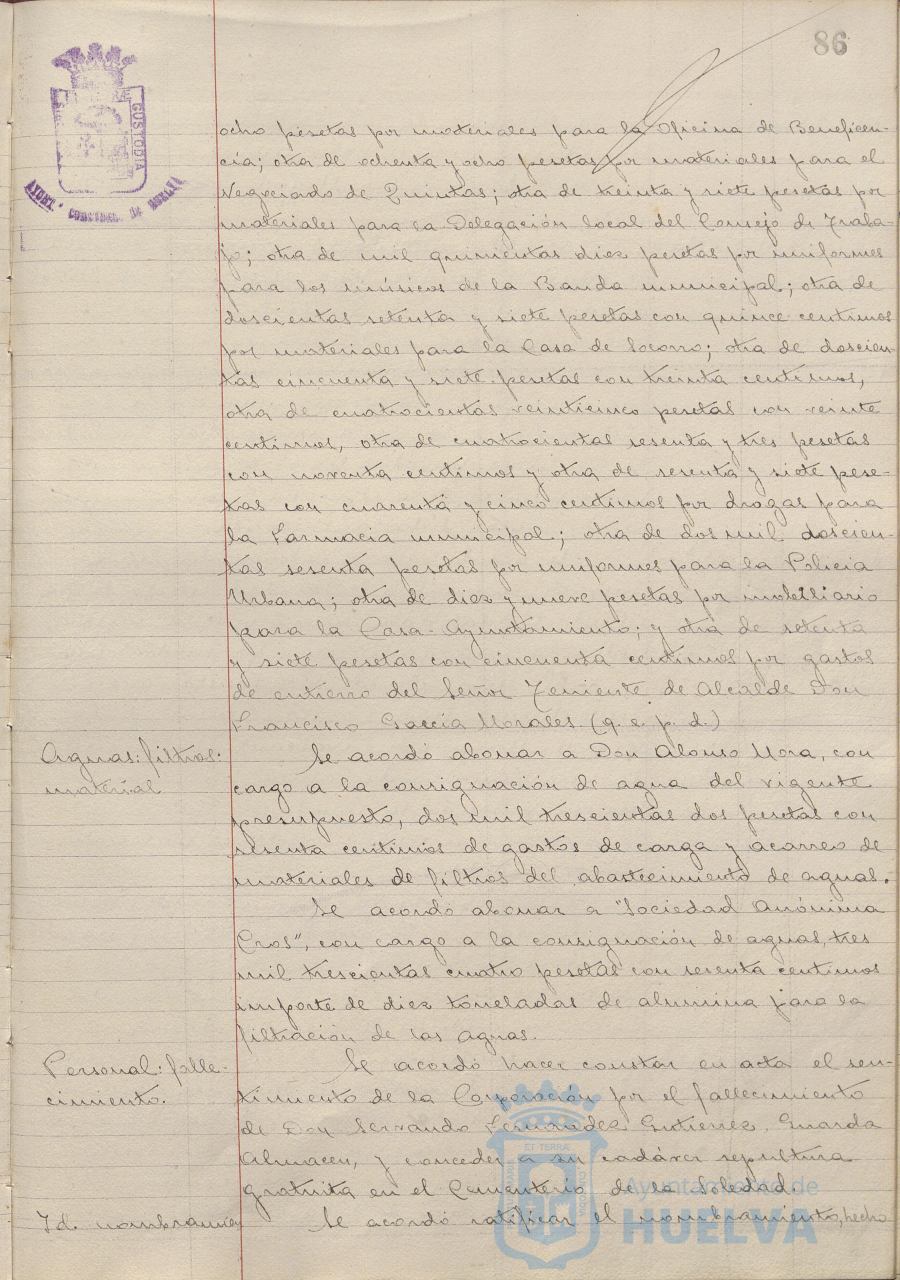 86
CUSTODIA
ocho pesetas por materiales para la Oficina de Beneficen-
cia; otra de ochenta y ocho pesetas por materiales para el
Negociado de Quintas; otra de treinta y siete pesetas por
materiales para la Delegación local del Consejo de Traba-
jo; otra de mil quinientas diez pesetas por uniformes
para los músicos de la Banda municipal; otra de
doscientas setenta y siete pesetas con quince centimos
por materiales para la Casa de Socorro; otra de doscien-
tas cincuenta y siete pesetas con treinta centimos,
otra de cuatrocientas veinticinco pesetas con veinte
centimos, otra de cuatrocientas sesenta y tres pesetas
con noventa centimos y otra de sesenta y siete pese-
tas con cuarenta y cinco centimos por drogas para
la Farmacia municipal; otra de dos mil doscien-
tas sesenta pesetas por uniformes para la Policia
Urbana; otra de diez y nueve pesetas por mobiliario
para la Casa-Ayuntamiento; y otra de setenta
y siete pesetas con cincuenta centimos por gastos
de entierro del Señor Teniente de Alcalde Don
Francisco García Morales (q. e. p. d.)
Aguas: filtros:
material
Se acordó abonar a Don Alonso Mora, con
cargo a la consignación de agua del vigente
presupuesto, dos mil trescientas dos pesetas con
sesenta centimos de gastos de carga y acarreo de
materiales de filtros del abastecimiento de aguas.
Se acordó abonar a "Sociedad Anónima
Cros", con cargo a la consignación de aguas, tres
mil trescientas cuatro pesetas con sesenta centimos
importe de diez toneladas de alumina para la
filtración de las aguas.
Personal: falle-
cimiento.
Se acordó hacer constar en acta el sen-
timiento de la Corporación por el fallecimiento
de Don Servando Fernández Gutierrez, Guarda
Almacen, y conceder a su cadáver sepultura
gratuita en el Cementerio de la Soledad.
Id. nombramien
Se acordó ratificar el nombramiento, hecho
Ayuntamiento de
HUELVA